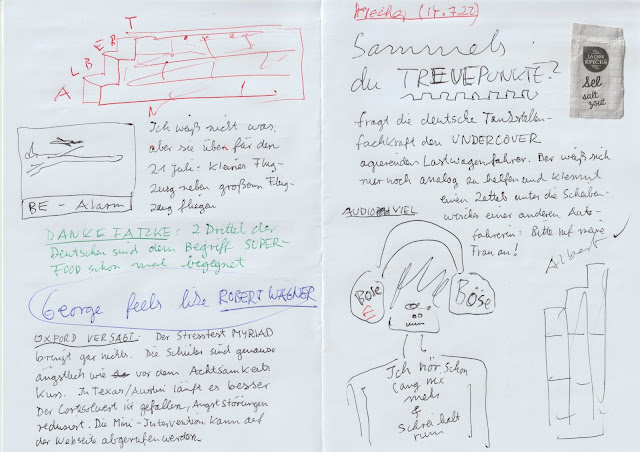 T
R
E
B
L
A
N
Ich weiß nicht was,
aber sie üben für den
21 Juli: kleines Flug-
zeug neben großem Flug-
zeug fliegen
BE - Alarm
DANKE FATZKE: 2 Drittel der
Deutschen sind dem Begriff SUPER-
FOOD schon mal begegnet
George feels like ROBERT WAGNER
OXFORD VERSAGT. Der Stresstest MYRIAD
bringt gar nichts. Die Schüler sind genauso
ängstlich wie vor dem Achtsamkeits
Kurs. In Texas/Austin läuft es besser
Der Cortisolwert ist gefallen, Angststörungen
reduziert. Die Mini-Intervention kann auf
der Webseite abgerufen werden.
(14.7.22)
Sammels
du TREUEPUNKTE?
fragt die deutsche Tankstellen-
fachkraft den UNDERCOVER
agierenden Lastwagenfahrer. Der weiß sich
nur noch analog zu helfen und klemmt
einen Zettel unter die Scheiben-
wischer einer anderen Auto-
fahrerin: Bitte ruf meine
Frau an!
Albert
AUDIO VIEL
Böse
E
Böse
Ich hör schon
lang nix
mehr
&
schrei halt
rum
LA CIE DES
ÉPICES
Sel
salt
zout